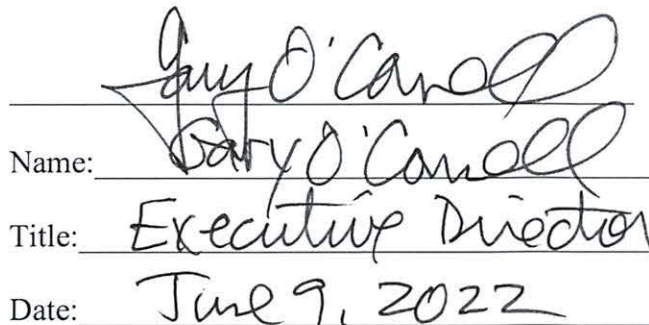 Gary O'Connell
Name: Gary O'Connell
Title: Executive Director
Date: June 9, 2022